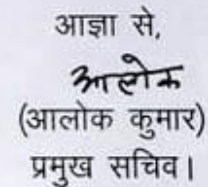 आज्ञा से,
आलोक
(आलोक कुमार)
प्रमुख सचिव।